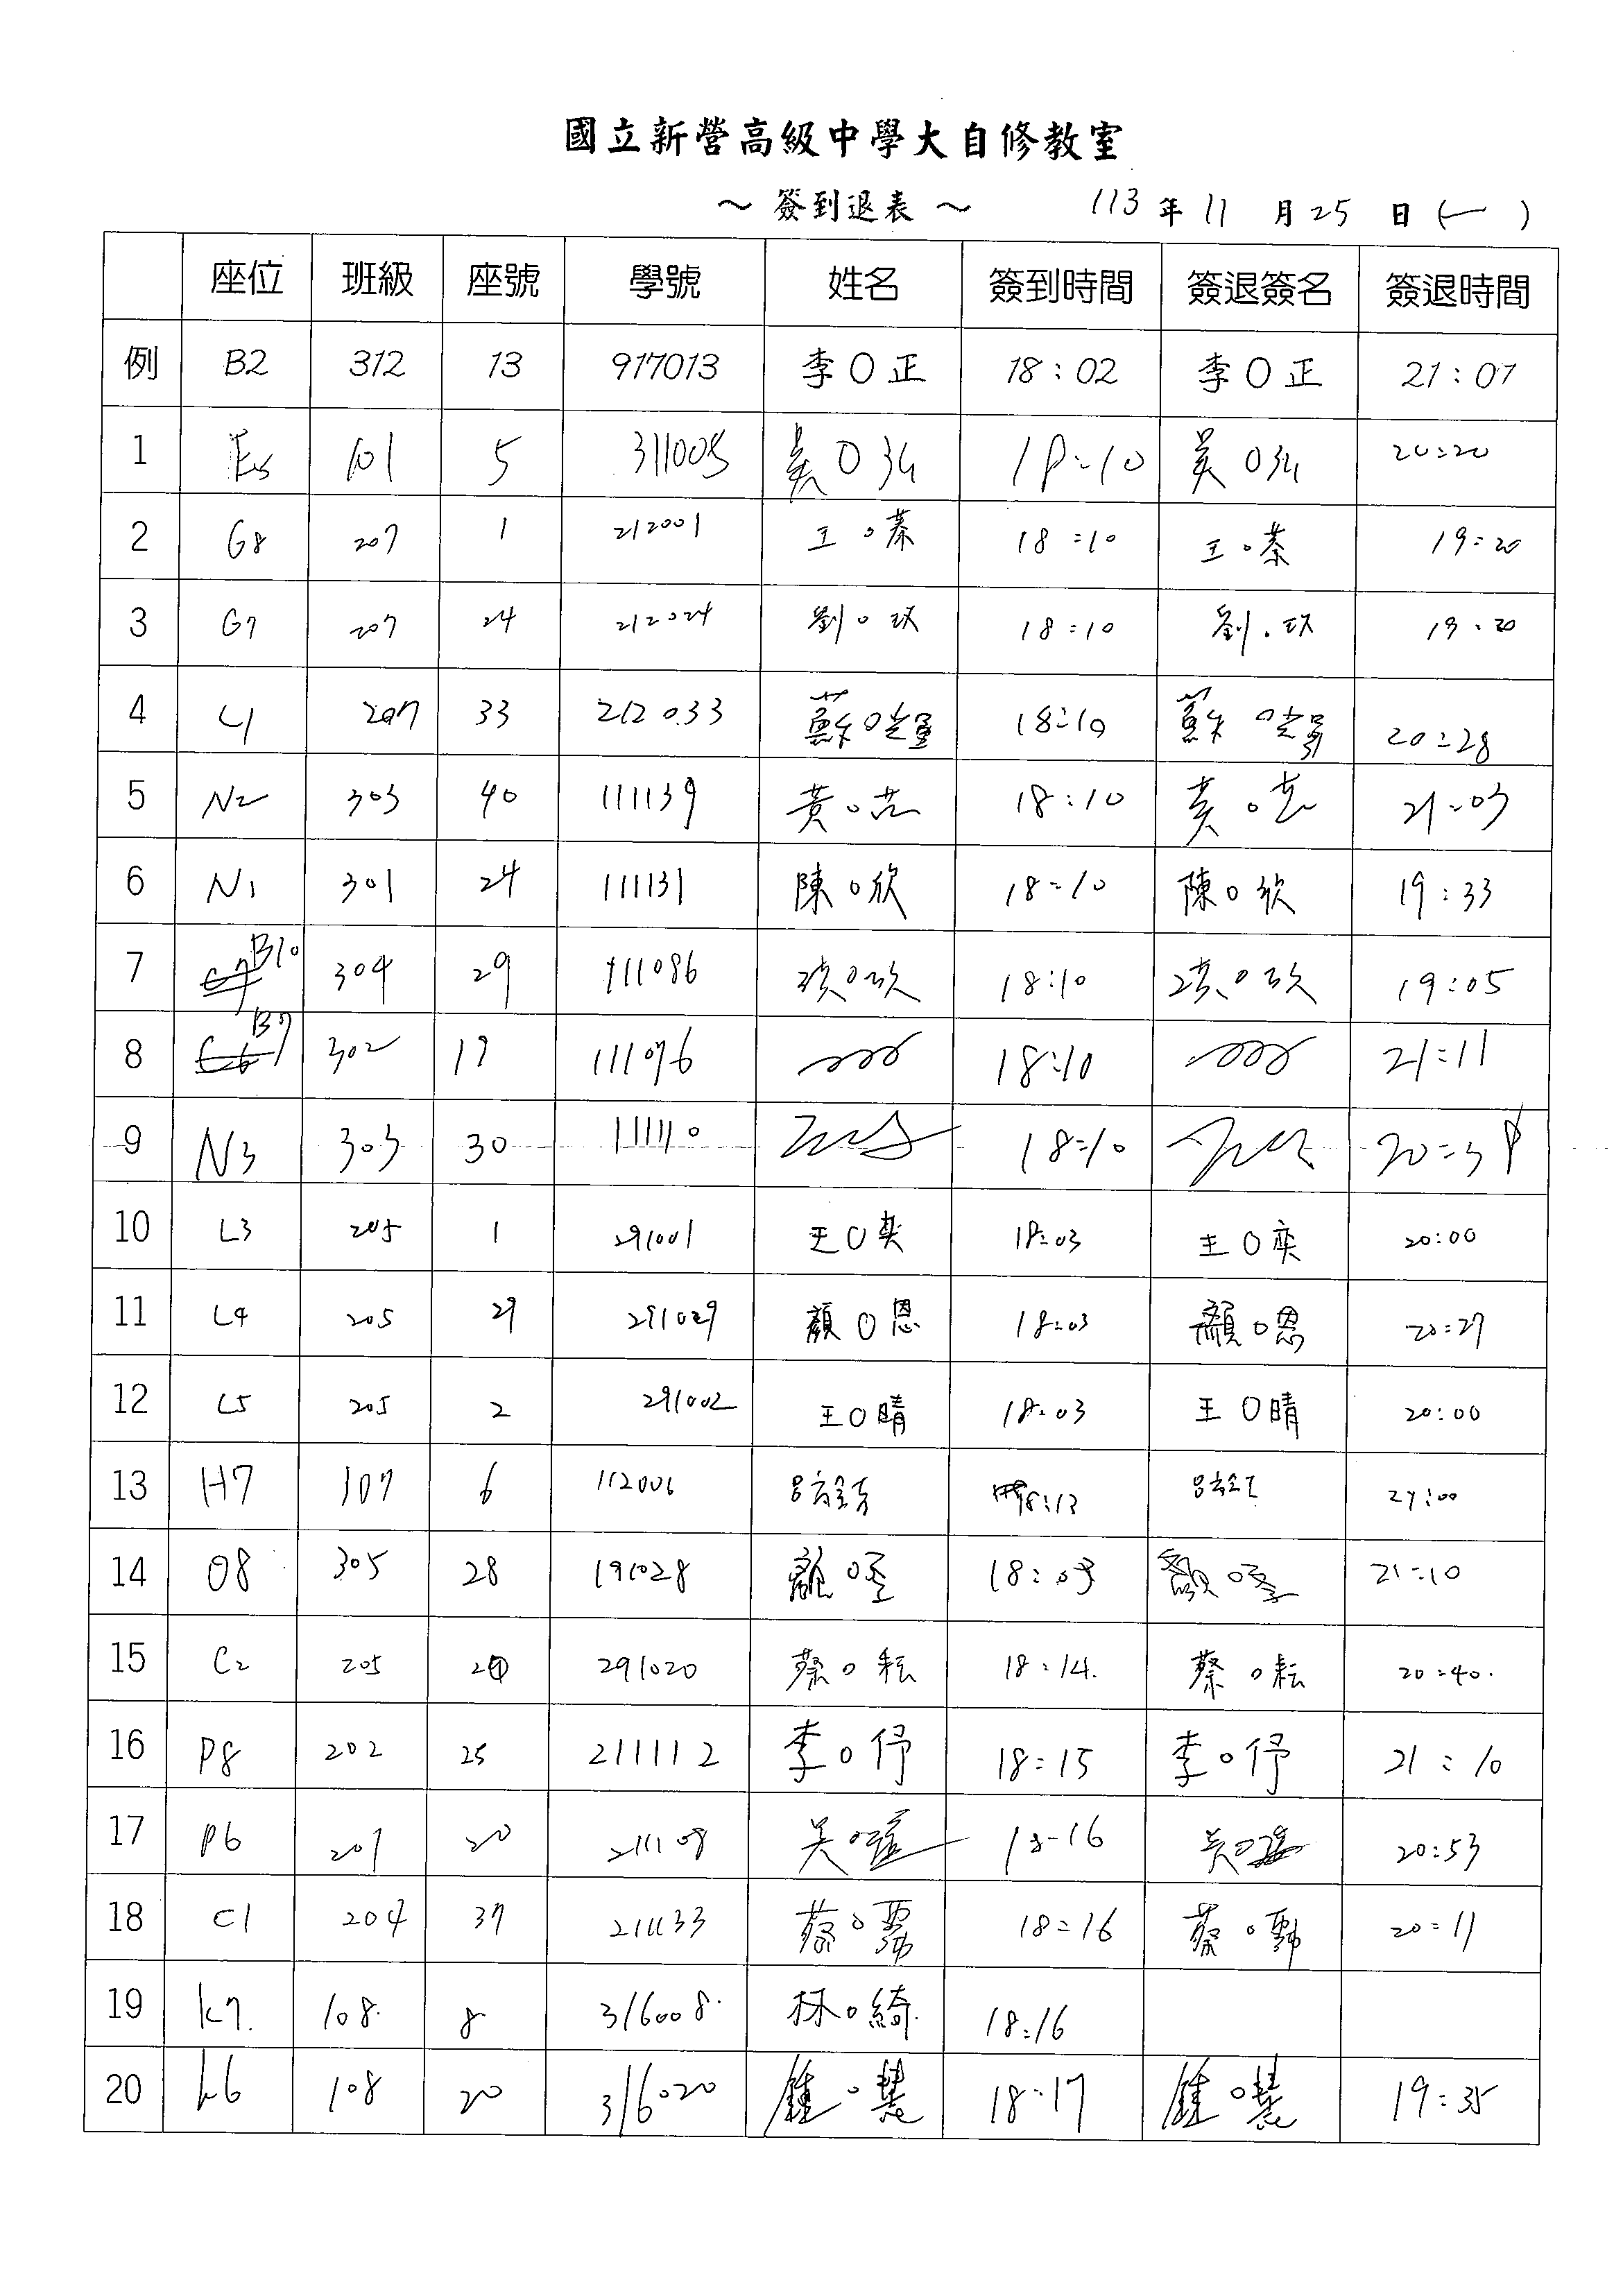 國立新營高級中學大自修教室
～ 簽到退表 ～ 113 年 11 月 25 日 (一)
座位 班級 座號 學號 姓名 簽到時間 簽退簽名 簽退時間
例 B2 312 13 917013 李O正 18:02 李O正 21:07
1 101 5 311005 18:10 20:20
2 G8 207 1 212001 王O蓁 18:10 王O蓁 19:20
3 G7 207 24 212024 劉O玟 18:10 劉O玟 19:20
4 207 33 212033 蘇O 18:10 蘇O 20:28
5 N2 303 40 111139 黃O 18:10 黃O 21:03
6 N1 301 24 111131 陳O欣 18:10 陳O欣 19:33
7 B10 304 29 111086 18:10 19:05
8 B7 302 17 111076 18:10 21:11
9 N3 303 30 111110 18:10
10 L3 205 1 291001 王O奕 18:03 王O奕 20:00
11 L4 205 29 291029 顏O恩 18:03 顏O恩 20:27
12 L5 205 2 291002 王O晴 18:03 王O晴 20:00
13 H7 107 6 112006 18:13 21:00
14 O8 305 28 191028 18:03 21:10
15 C2 205 20 291020 蔡O耘 18:14 蔡O耘 20:40
16 P8 202 25 211112 李O伃 18:15 李O伃 21:10
17 P6 201 20 吳O 18:16 吳O 20:53
18 C1 204 37 211133 蔡O 18:16 蔡O 20:11
19 K7 108 8 316008 林O綺 18:16
20 K6 108 20 316020 鍾O慧 18:17 鍾O慧 19:35